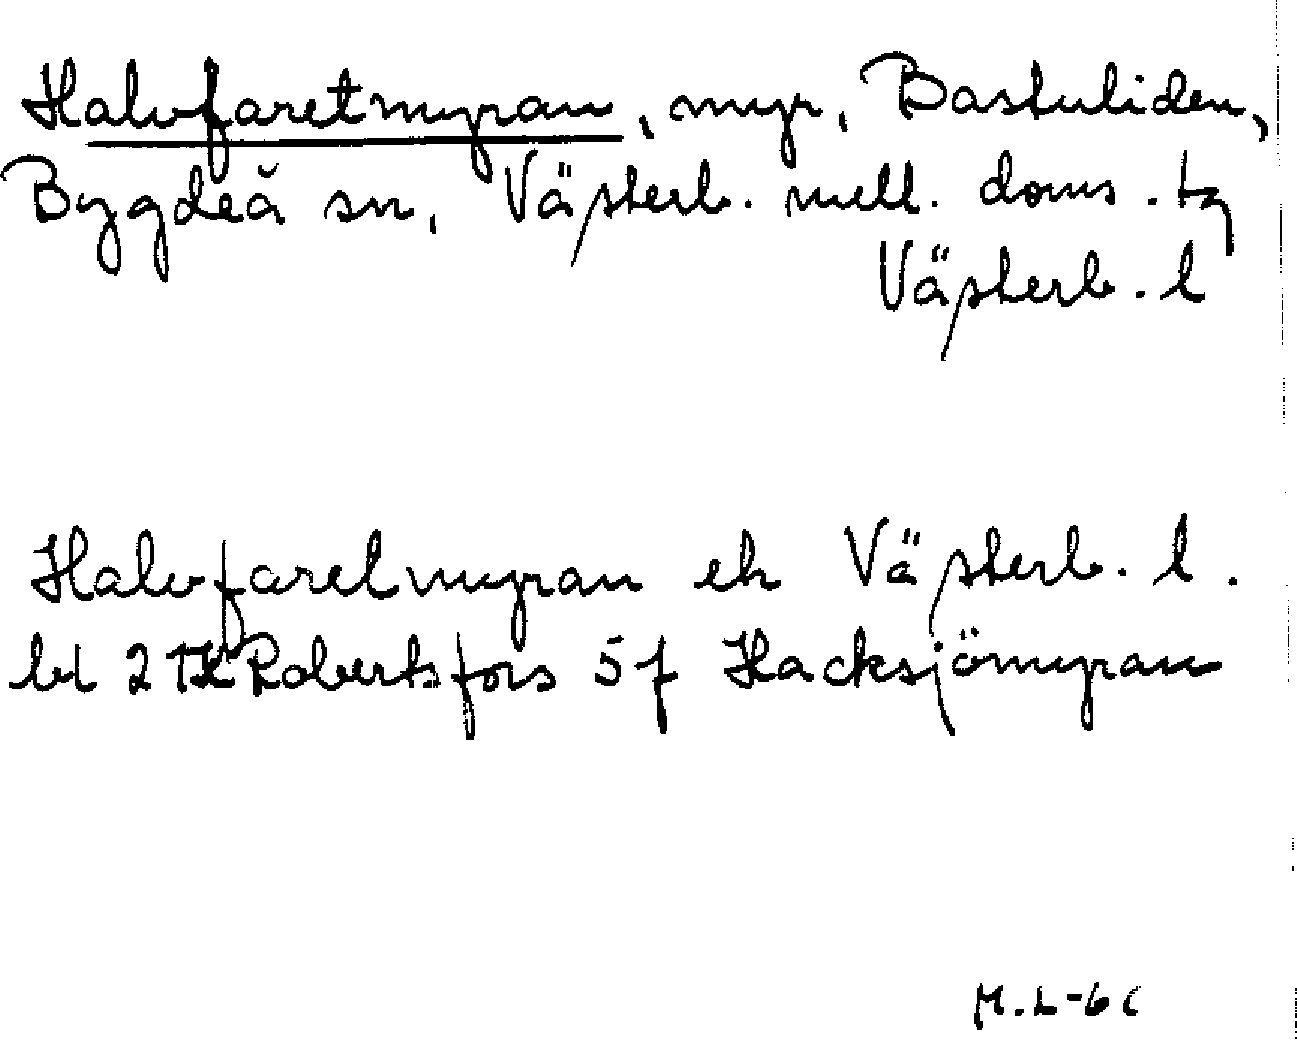 Halvfaretmyran, myr, Bastuliden,
Bygdeå sn, Västerb. mell. doms. tg
Västerb. l
Halvfaretmyran ek Västerb. l.
bl 21K Robertsfors 5f Hacksjömyran
M.L-66